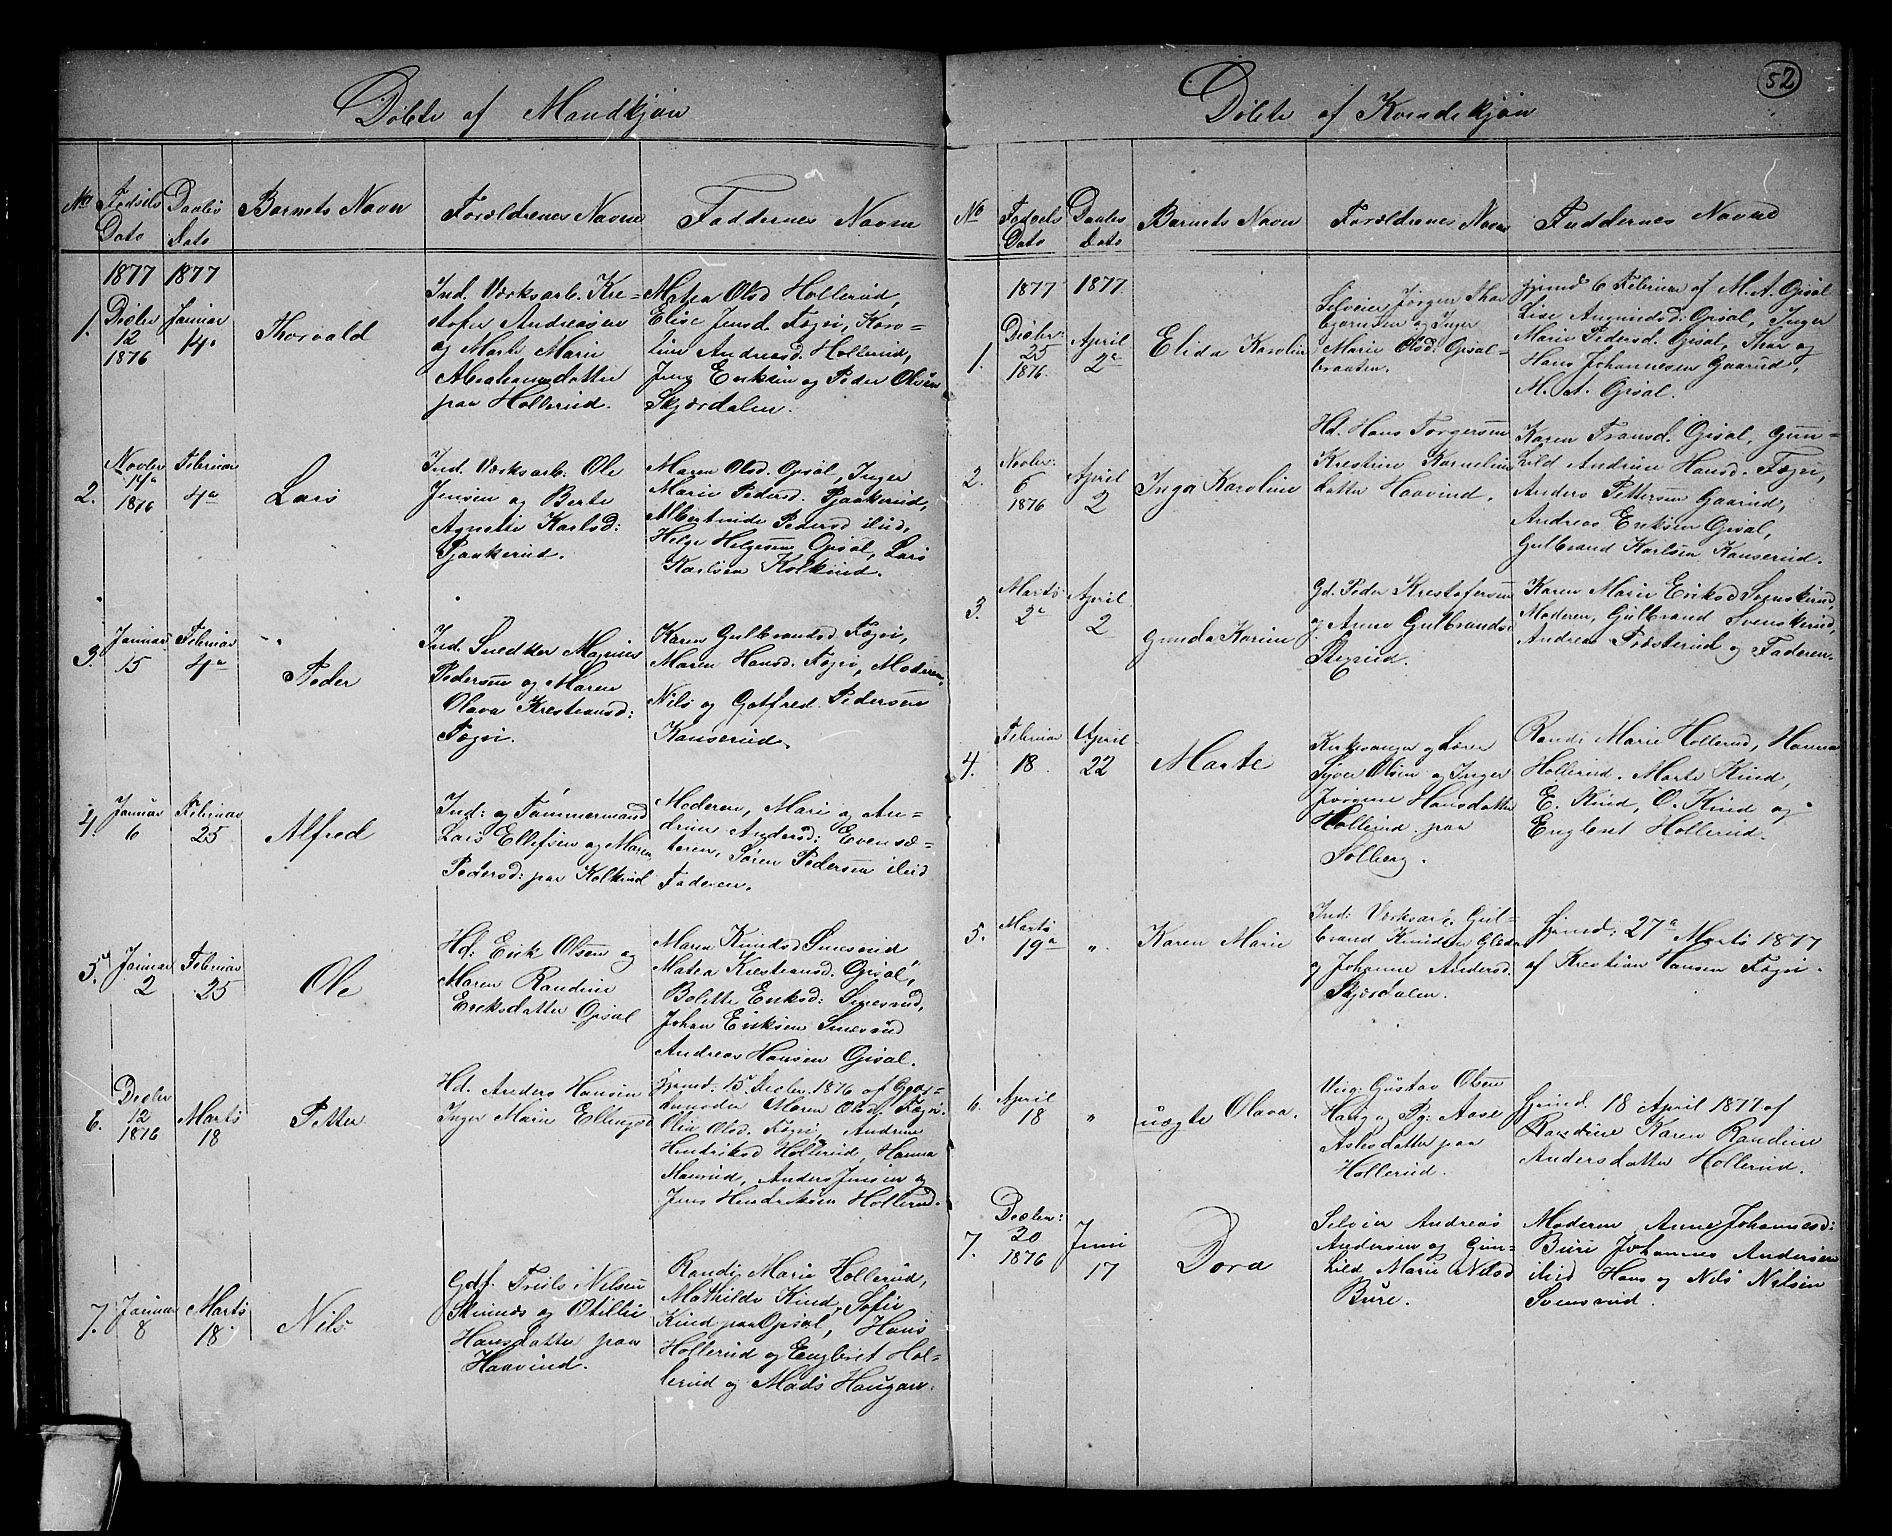 52
Döbte af Mandkjön
No Födsels Dato Daabs Dato Barnets Navn Forældrenes Navne Faddernes Navne
1877 1877
1. Decbr 12 1876 Januar 14a Thorvald
Ind. Værksarb. Kre-
stofer Andreasen
og Marte Marie
Abrahamsdatter
paa Hollerud.
Matea Olsd Hollerud,
Elise Jensd. Fægri, Karo-
line Andreasd. Hollerud,
Jens Eriksen og Peder Olsen
Skjærdalen.
2. Novbr 14a 1876 Februar 4a Lars
Ind. Værksarb. Ole
Jensen og Berte
Agnete Karlsd:
Pjaakerud.
Maren Olsd. Gjsal, Inger
Marie Pedersd. Pjaakerud,
Albertine Pedersd ibid,
Helge Helgesen Opsal, Lars
Karlsen Kolkind.
3. Januar 15 Februar 4a Peder
Ind. Snedker Magnus
Pedersen og Maren
Olava Krestiansd:
Fægri.
Karen Gulbrandsd. Fægri,
Maren Hansd. Fægri, Moderen,
Nils og Gotfred Pedersen
Kanserud.
4. Januar 6 Februar 25 Alfred
Ind: og Tömmermand
Lars Ellefsen og Maren
Pedersd: paa Kolkind
Moderen, Marie og An-
drine Andersd: Evensæ-
teren, Sören Pedersen ibid
Faderen.
5. Januar 2 Februar 25 Ole
Hd: Erik Olsen og
Maren Randine
Eriksdatter Opsal
Maren Knudsd Snesrud
Matea Krestiansd. Opsal,
Bolette Eriksd: Snesrud,
Johan Eriksen Snesrud
Andreas Hansen Opsal.
6. Decbr 12 1876 Marts 18 Petter
Hd. Anders Hansen
Inger Marie Ellingsd
Hjemd: 15 Decbr 1876 af Gjor-
demoder Maren Olsd. Fægri.
Olia Olsd. Fægri, Andrine
Hendriksd Hollerud, Hanna
Anders Jensen og
Jens Hendriksen Hollerud.
7. Januar 8 Marts 18 Nils
Gdf. Truls Nilsen
Skinnes og Otillie
Hansdatter paa
Haavind.
Randi Marie Hollerud,
Mathilde Kind, Sofie
Kind paa Opsal, Hans
Hollerud og Englbret Hol-
lerud og Mads Haugan.
Döbte af Kvindekjön
No Födsels Dato Daabs Dato Barnets Navn Forældrenes Navne Faddernes Navne
1877 1877
1. Decbr: 25 1876 April 2a Elida Karolin
Selveier Jörgen Thor
björnsen og Inger
Marie Olsd: Opsal-
braaten.
Hjemd 6 Februar af M. A. Opsal
Lise Opsal, Inger
Marie Pedersd. Opsal, Thor og
Hans Johannesen Gaarud,
M. A. Opsal.
2. Novbr: 6 1876 April 2 Inga Karoline
Hd. Hans Torgersen
Krestine Kornelius
datter Haavind.
Karen Fransd. Opsal, Gun-
hild Andrine Hansd. Fægri,
Anders Pettersen Gaarud,
Andreas Eriksen Opsal,
Gulbrand Karlsen Kanserud.
3. Marts 2a April 2 Gunda Karine
Gd. Peder Krestofersen
og Anne Gulbrandsd
Karen Marie Eriksd Svenskerud,
Moderen, Gulbrand Svenskerud,
Andrea Præsterud og Faderen.
4. Februar 18 April 22 Marte
Kirkesanger og Lærer
Syver Olsen og Inger
Jörgine Hansdatter
Hollerud paa
Solberg.
Randi Marie Hollerud, Hanna
Hollerud. Marte Kind,
E. Kind, O. Kind og
Englbret Hollerud.
5. Marts 19a " Karen Marie
Ind: Værksarb. Gul-
brand Knudsen
og Johanne Andersd.
Skjærdalen.
Hjemd: 27a Marts 1877
af Krestian Hansen Fægri.
6. April 18 " uægte Olava.
Ung: Gustav Olsen
Haug og Pg: Aase
Aslesdatter paa
Hollerud.
Hjemd. 18 April 1877 af
Karen Randine
Andersdatter Hollerud.
7. Decbr: 20 1876 Juni 17 Dora
Selveier Andreas
Andersen og Gun-
hild Marie Nilsd
Bure.
Moderen Anne Johannesd:
Bure Johannes Andersen
ibid Hans og Nils Nilsen
Svensrud.